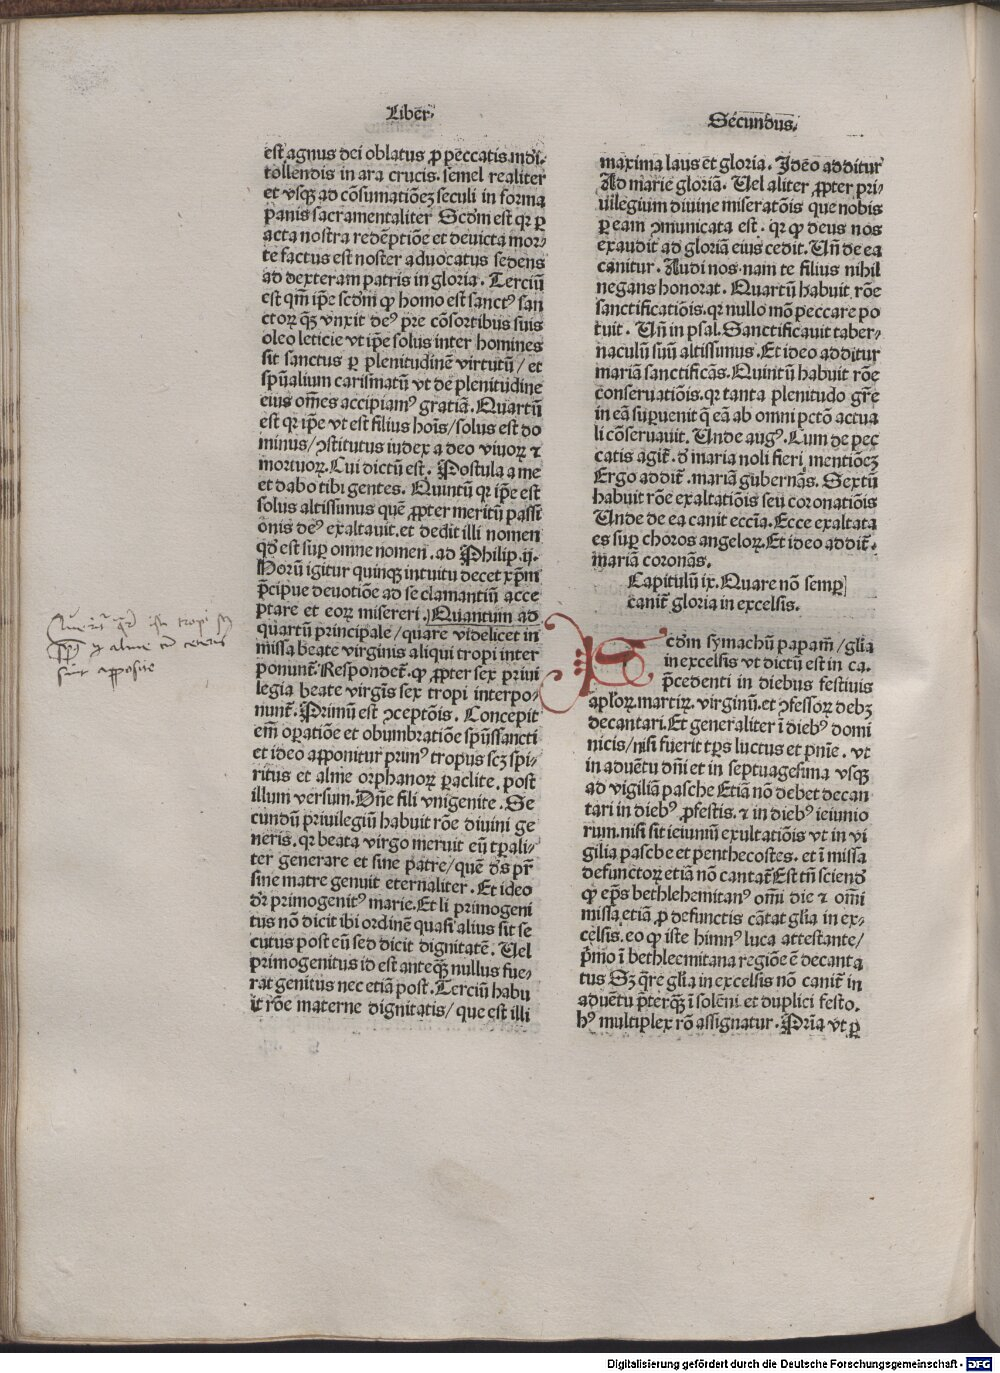 Liber·
est agnus dei oblatus ꝓ peccatis mūdi.
tollendis in ara crucis. semel realiter
et vsqꝫ ad cōsumatiōeꝫ seculi in forma
panis sacramentaliter Scđm est qꝛ ꝑ
acta nostra redēptiōe et deuicta mor⸗
te factus est noster aduocatus sedens
ad dexteram patris in gloria. Terciū
est qm̄ ip̄e scđm ꝙ homo est sanctꝰ san
ctoꝝ qꝫ vnxit deꝰ pre cōsortibus suis
oleo leticie vt ip̄e solus inter homines
sit sanctus ꝑ plenitudinē virtutū / et
sp̄ualium carismatū vt de plenitudine
eius om̄es accipiamꝰ gratiā. Quartū
est qꝛ ip̄e vt est filius hoīs / solus est do
minus / ꝯstitutus iudex a deo viuoꝝ ⁊
mortuoꝝ. Cui dictū est. Postula a me
et dabo tibi gentes. Quintū qꝛ ip̄e est
solus altissimus quē ꝓpter meritū passi
onis deꝰ exaltauit. et dedit illi nomen
qđ est suꝑ omne nomen. ad Philip. ij.
Horū igitur quinqꝫ intuitu decet xp̄m
p̄cipue deuotiōe ad se clamantiū acce
ptare et eoꝝ misereri. Quantum ad
quartū principale / quare videlicet in
missa beate virginis aliqui tropi inter
ponunt̄. Respondet̄. ꝙ ꝓpter sex priui
legia beate virgīs sex tropi interpo⸗
nunt̄. Primū est ꝯceptōis. Concepit
em̄ oꝑatiōe et obumbratiōe sp̄ussancti
et ideo apponitur primꝰ tropus scꝫ spi⸗
ritus et alme orphanoꝝ ꝑaclite. post
illum versum. Dn̄e fili vnigenite. Se
cundū priuilegiū habuit rōe diuini ge
neris. qꝛ beata virgo meruit eū tꝑali⸗
ter generare et sine patre / quē ds̄ pr̄
sine matre genuit eternaliter. Et ideo
dr̄ primogenitꝰ marie. Et li primogeni
tus nō dicit ibi ordinē quasi alius sit se
cutus post eū sed dicit dignitatē. Vel
primogenitus id est anteqꝫ nullus fue⸗
rat genitus nec etiā post. Terciū habu
it rōe materne dignitatis / que est illi
Secundus.
maxima laus et gloria. Ideo additur
Ad marie gloriā. Vel aliter ꝓpter pri⸗
uilegium diuine miseratōis que nobis
ꝑ eam ꝯmunicata est. qꝛ ꝙ deus nos
exaudit ad gloriā eius cedit. Vn̄ de ea
canitur. Audi nos. nam te filius nihil
negans honorat. Quartū habuit rōe
sanctificatiōis. qꝛ nullo mō peccare po
tuit. Vn̄ in psal. Sanctificauit taber⸗
naculū suū altissimus. Et ideo additur
mariā sanctificās. Quintū habuit rōe
conseruatiōis. qꝛ tanta plenitudo gr̄e
in eā suꝑuenit q̄ eā ab omni pctō actua
li cōseruauit. Vnde augꝰ. Cum de pec
catis agit̄. đ maria noli fieri mentiōeꝫ
Ergo addit̄. mariā gubernās. Sextū
habuit rōe exaltatiōis seu coronatiōis
Vnde de ea canit eccīa. Ecce exaltata
es suꝑ choros angeloꝝ. Et ideo addit̄.
mariā coronās.
Capitulū ix. Quare nō semꝑ
canit̄ gloria in excelsis.
Scđm symachū papam̄ / glia
in excelsis vt dictū est in ca.
p̄cedenti in diebus festiuis
apl̄oꝝ. martiꝝ. virginū. et ꝯfessoꝝ debꝫ
decantari. Et generaliter ī diebꝰ domi
nicis / nisi fuerit tꝑs luctus et pn̄ie. vt
in aduētu dn̄i et in septuagesima vsqꝫ
ad vigiliā pasche Etiā nō debet decan
tari in diebꝰ ꝓfestis. ⁊ in diebꝰ ieiunio
rum. nisi sit ieiunū exultatiōis vt in vi
gilia pasche et penthecostes. et ī missa
defunctoꝝ etiā nō cantat̄ Est tn̄ sciend̄
ꝙ ep̄s bethlehemitanꝰ om̄i die ⁊ om̄i
missa etiā ꝓ defunctis cātat glia in ex⸗
celsis. eo ꝙ iste himnꝰ luca attestante /
p̄mo ī bethleemitana regiōe ē decanta
tus Sꝫ q̄re glia in excelsis nō canit̄ in
aduētu p̄terqꝫ ī solēni et duplici festo.
hꝰ multiplex rō assignatur. Pria vt ꝑ
Digitalisierung gefördert durch die Deutsche Forschungsgemeinschaft - DFG